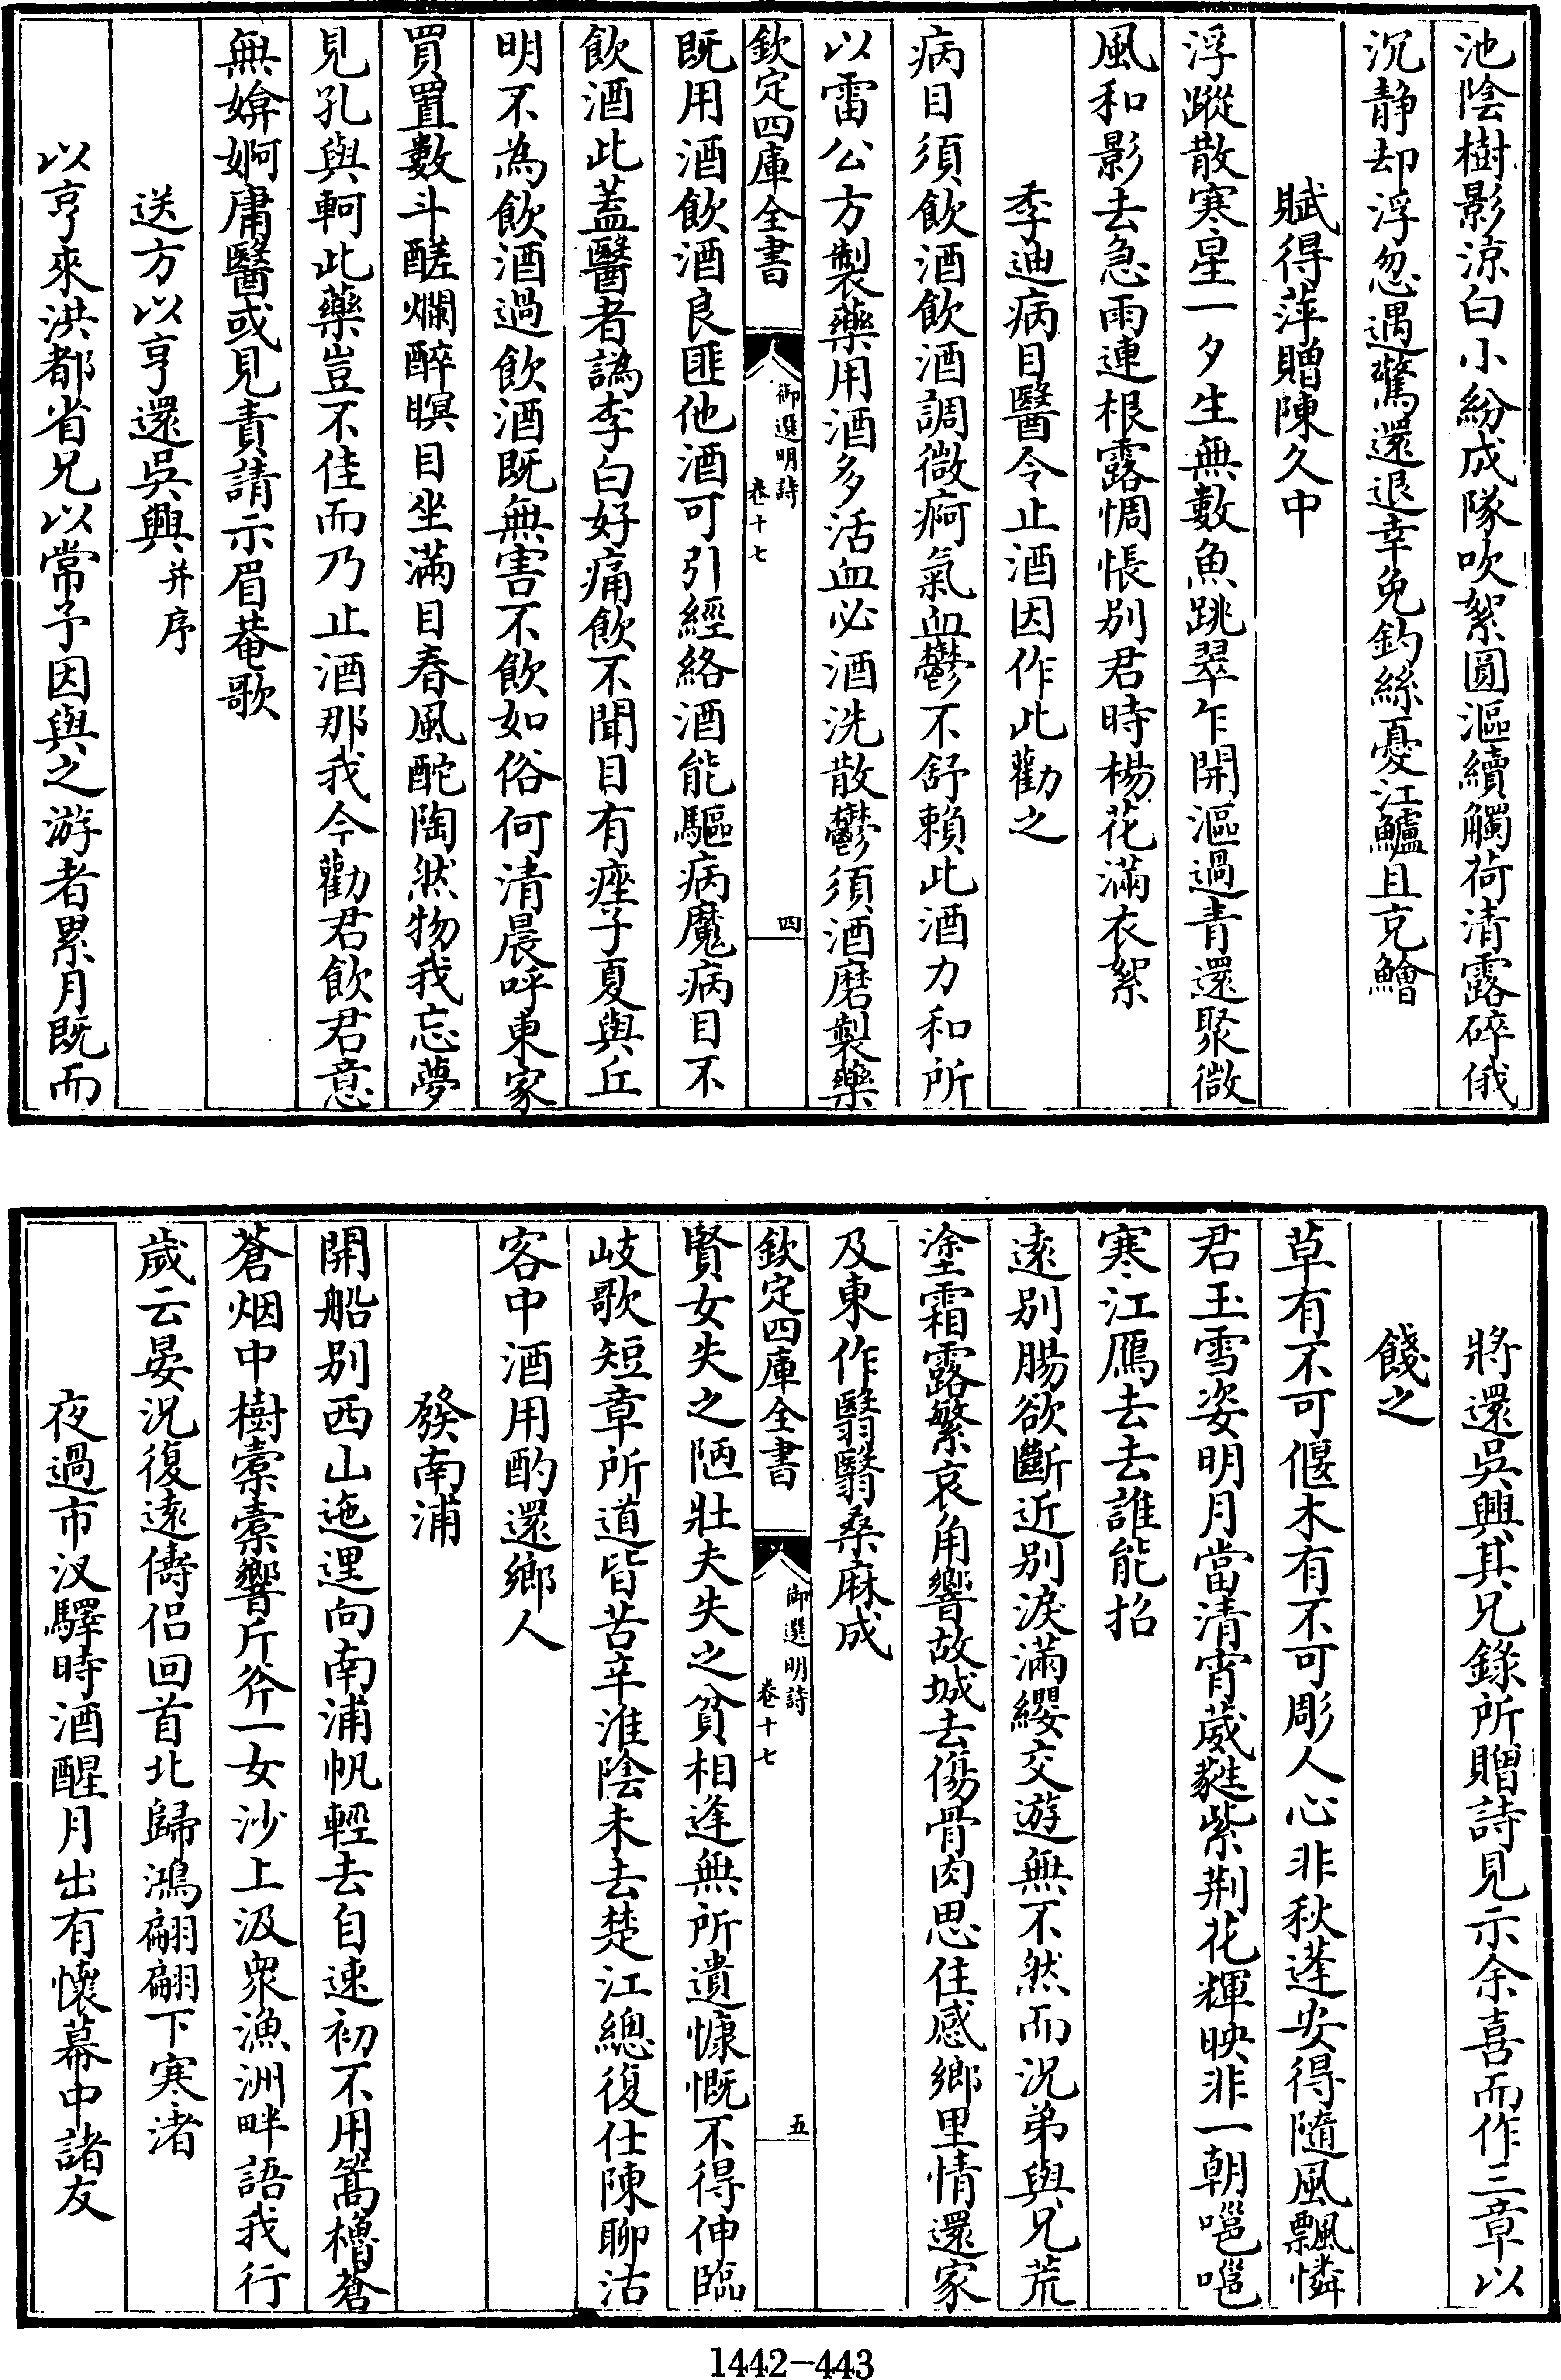 池陰樹影涼白小紛成隊吹絮圓漚續觸荷清露碎俄
沉静却浮忽遇驚還退幸免釣絲憂江鱸且克鱠
賦得萍贈陳久中
浮蹤散寒星一夕生無數魚跳翠乍開漚過青還聚微
風和影去急雨連根露惆悵别君時楊花滿衣絮
季迪病目醫令止酒因作此勸之
病目須飲酒飲酒調微痾氣血鬱不舒賴此酒力和所
以雷公方製藥用酒多活血必酒洗散鬱須酒磨製藥
欽定四庫全書
御選明詩
卷十七
四
既用酒飲酒良匪他酒可引經絡酒能驅病魔病目不
飲酒此蓋醫者譌李白好痛飲不聞目有痤子夏與丘
明不為飲酒過飲酒既無害不飲如俗何清晨呼東家
買置數斗醝爛醉瞑目坐滿目春風酡陶然物我忘夢
見孔與軻此藥豈不佳而乃止酒那我今勸君飲君意
無媕婀庸醫或見責請示眉菴歌
送方以亨還吳興并序
以亨來洪都省兄以常予因與之游者累月既而
將還吳興其兄錄所贈詩見示余喜而作三章以
餞之
草有不可偃木有不可彫人心非秋蓬安得隨風飄憐
君玉雪姿明月當清宵葳蕤紫荆花輝映非一朝嗈嗈
寒江鴈去去誰能招
遠别腸欲斷近别淚滿纓交遊無不然而況弟與兄荒
塗霜露繁哀角響故城去傷骨肉思住感鄉里情還家
及東作翳翳桑麻成
欽定四庫全書
御選明詩
卷十七
五
賢女失之陋壯夫失之貧相逢無所遺慷慨不得伸臨
岐歌短章所道皆苦辛淮陰未去楚江總復仕陳聊沽
客中酒用酌還鄉人
發南浦
開船别西山迤邐向南浦帆輕去自速初不用篙櫓蒼
蒼烟中樹橐橐響斤斧一女沙上汲衆漁洲畔語我行
歲云晏況復遠儔侣回首北歸鴻翩翩下寒渚
夜過市汊驛時酒醒月出有懷幕中諸友
1442-443